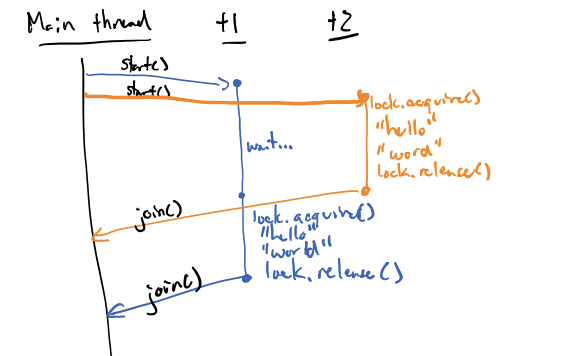 Main thread t1 t2
start()
start()
lock.acquire()
"hello"
"word"
lock.release()
wait...
join()
lock.acquire()
"hello"
"world"
lock.release()
join()